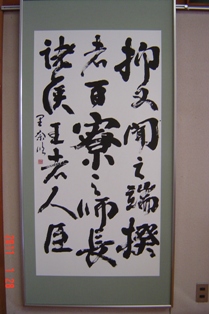 抑又聞之端揆
者百寮之師長
諸侯王者人臣